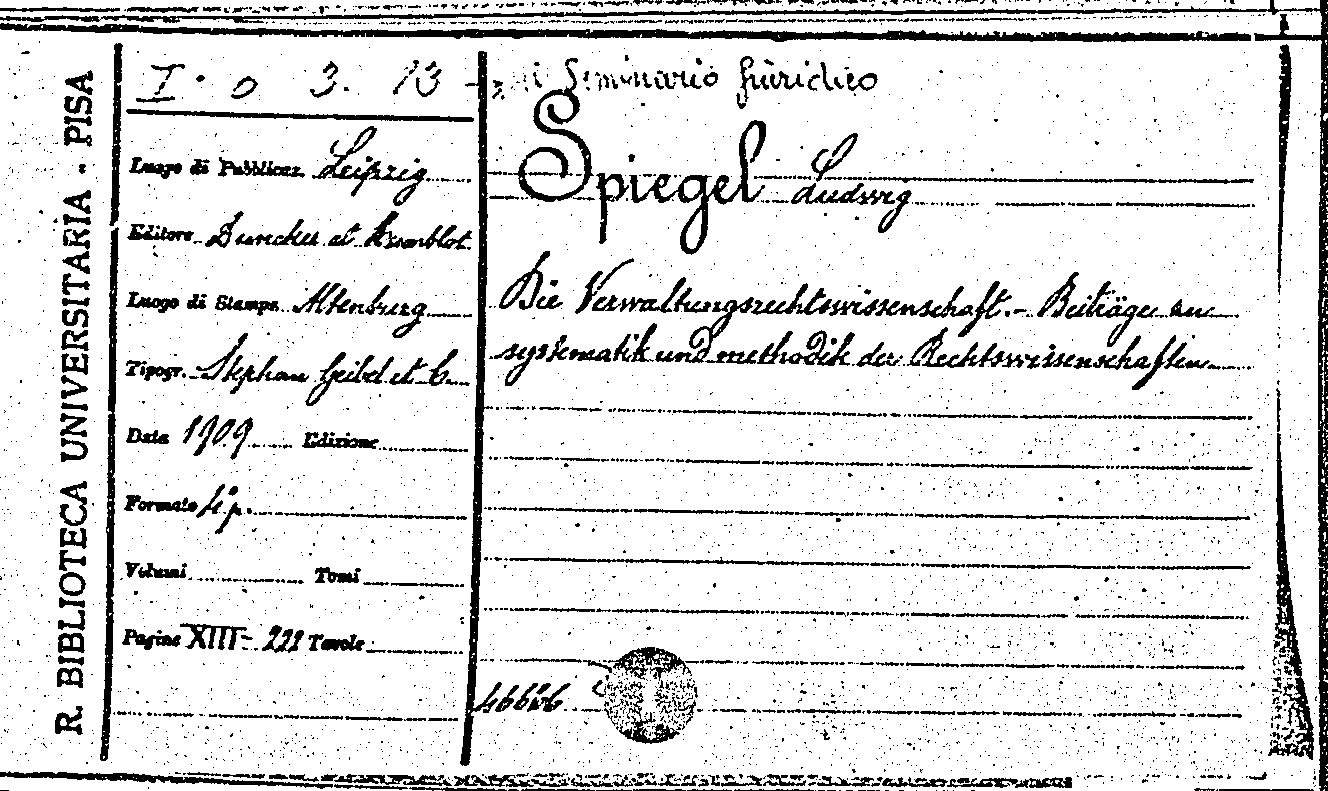 R. BIBLIOTECA UNIVERSITARIA - PISA
I. o 3. 13
Seminario Giuridico
Spiegel Ludwig
Luogo di Pubblicaz. Leipzig
Editore Duncker et Humblot
Luogo di Stampa Altenburg
Tipogr. Stephan Geibel et C.
Data 1909 Edizione
Formato 4° p.
Volumi Tomi
Pagine XIII - 222 Tavole
Die Verwaltungsrechtswissenschaft. - Beiträge zur
systematik und methodik der Rechtswissenschaften